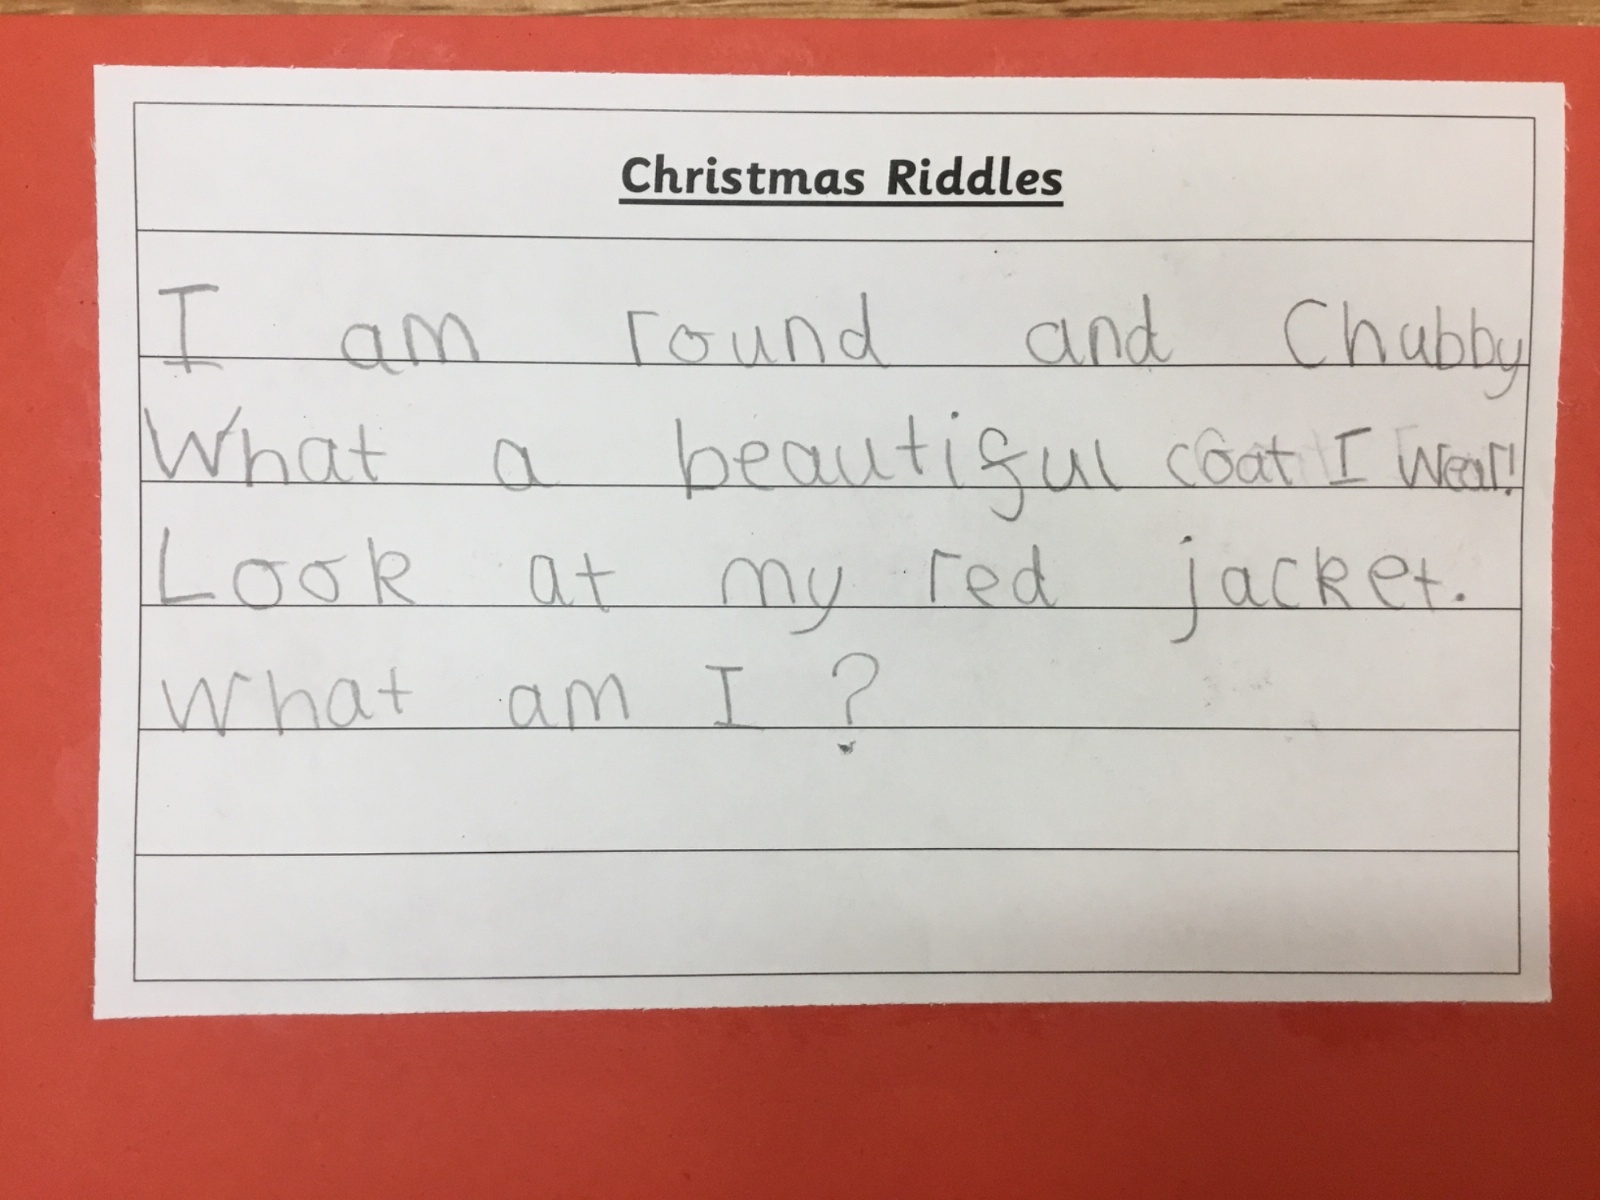 Christmas Riddles
I am round and Chubby
What a beautiful coat I wear!
Look at my red jacket.
What am I ?